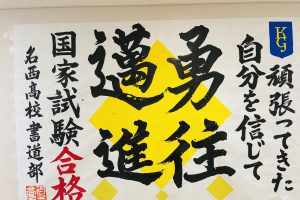 KG
頑張ってきた
自分を信じて
勇往
邁進
国家試験合格
名西高校書道部